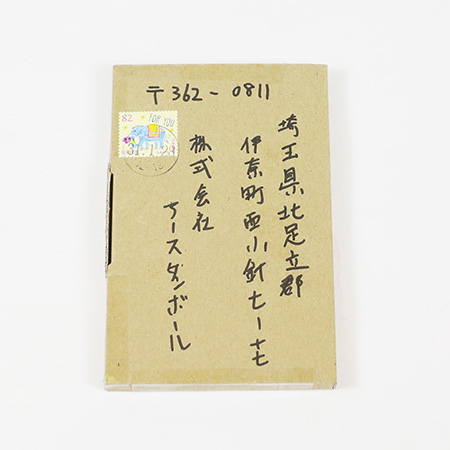 〒362-0811
埼玉県北足立郡
伊奈町西小針七-十七
株式会社
アースダンボール
82
FOR YOU